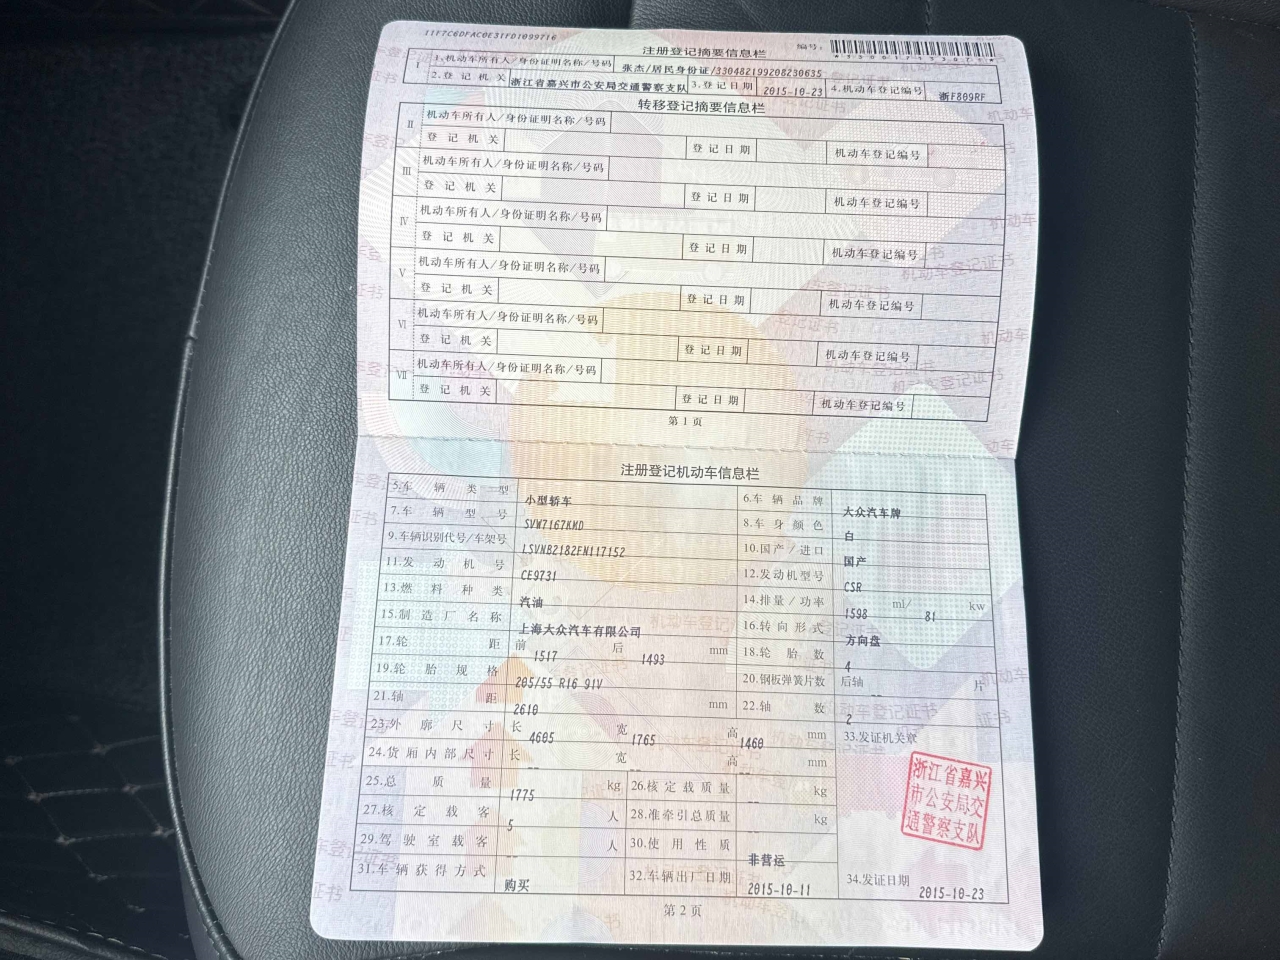 11F7C6DFAC0E31FD1099716
注册登记摘要信息栏 编号:
I 1.机动车所有人/身份证明名称/号码 张杰/居民身份证/330482199208230635
2.登记机关 浙江省嘉兴市公安局交通警察支队 3.登记日期 2015-10-23 4.机动车登记编号 浙F809RF
转移登记摘要信息栏
II 机动车所有人/身份证明名称/号码
登记机关 登记日期 机动车登记编号
III 机动车所有人/身份证明名称/号码
登记机关 登记日期 机动车登记编号
IV 机动车所有人/身份证明名称/号码
登记机关 登记日期 机动车登记编号
V 机动车所有人/身份证明名称/号码
登记机关 登记日期 机动车登记编号
VI 机动车所有人/身份证明名称/号码
登记机关 登记日期 机动车登记编号
VII 机动车所有人/身份证明名称/号码
登记机关 登记日期 机动车登记编号
第1页
注册登记机动车信息栏
5.车辆类型 小型轿车 6.车辆品牌 大众汽车牌
7.车辆型号 SVW7167KMD 8.车身颜色 白
9.车辆识别代号/车架号 LSVNB2182FN117152 10.国产/进口 国产
11.发动机号 CE9731 12.发动机型号 CSR
13.燃料种类 汽油 14.排量/功率 1598 ml/ 81 kw
15.制造厂名称 上海大众汽车有限公司 16.转向形式 方向盘
17.轮距 前 1517 后 1493 mm 18.轮胎数 4
19.轮胎规格 205/55 R16 91V 20.钢板弹簧片数 后轴 -- 片
21.轴距 2610 mm 22.轴数 2
23.外廓尺寸 长 4605 宽 1765 高 1460 mm 33.发证机关章
24.货厢内部尺寸 长 -- 宽 -- 高 -- mm
25.总质量 1775 kg 26.核定载质量 -- kg
27.核定载客 5 人 28.准牵引总质量 -- kg
29.驾驶室载客 -- 人 30.使用性质 非营运
31.车辆获得方式 购买 32.车辆出厂日期 2015-10-11 34.发证日期 2015-10-23
浙江省嘉兴
市公安局交
通警察支队
第2页